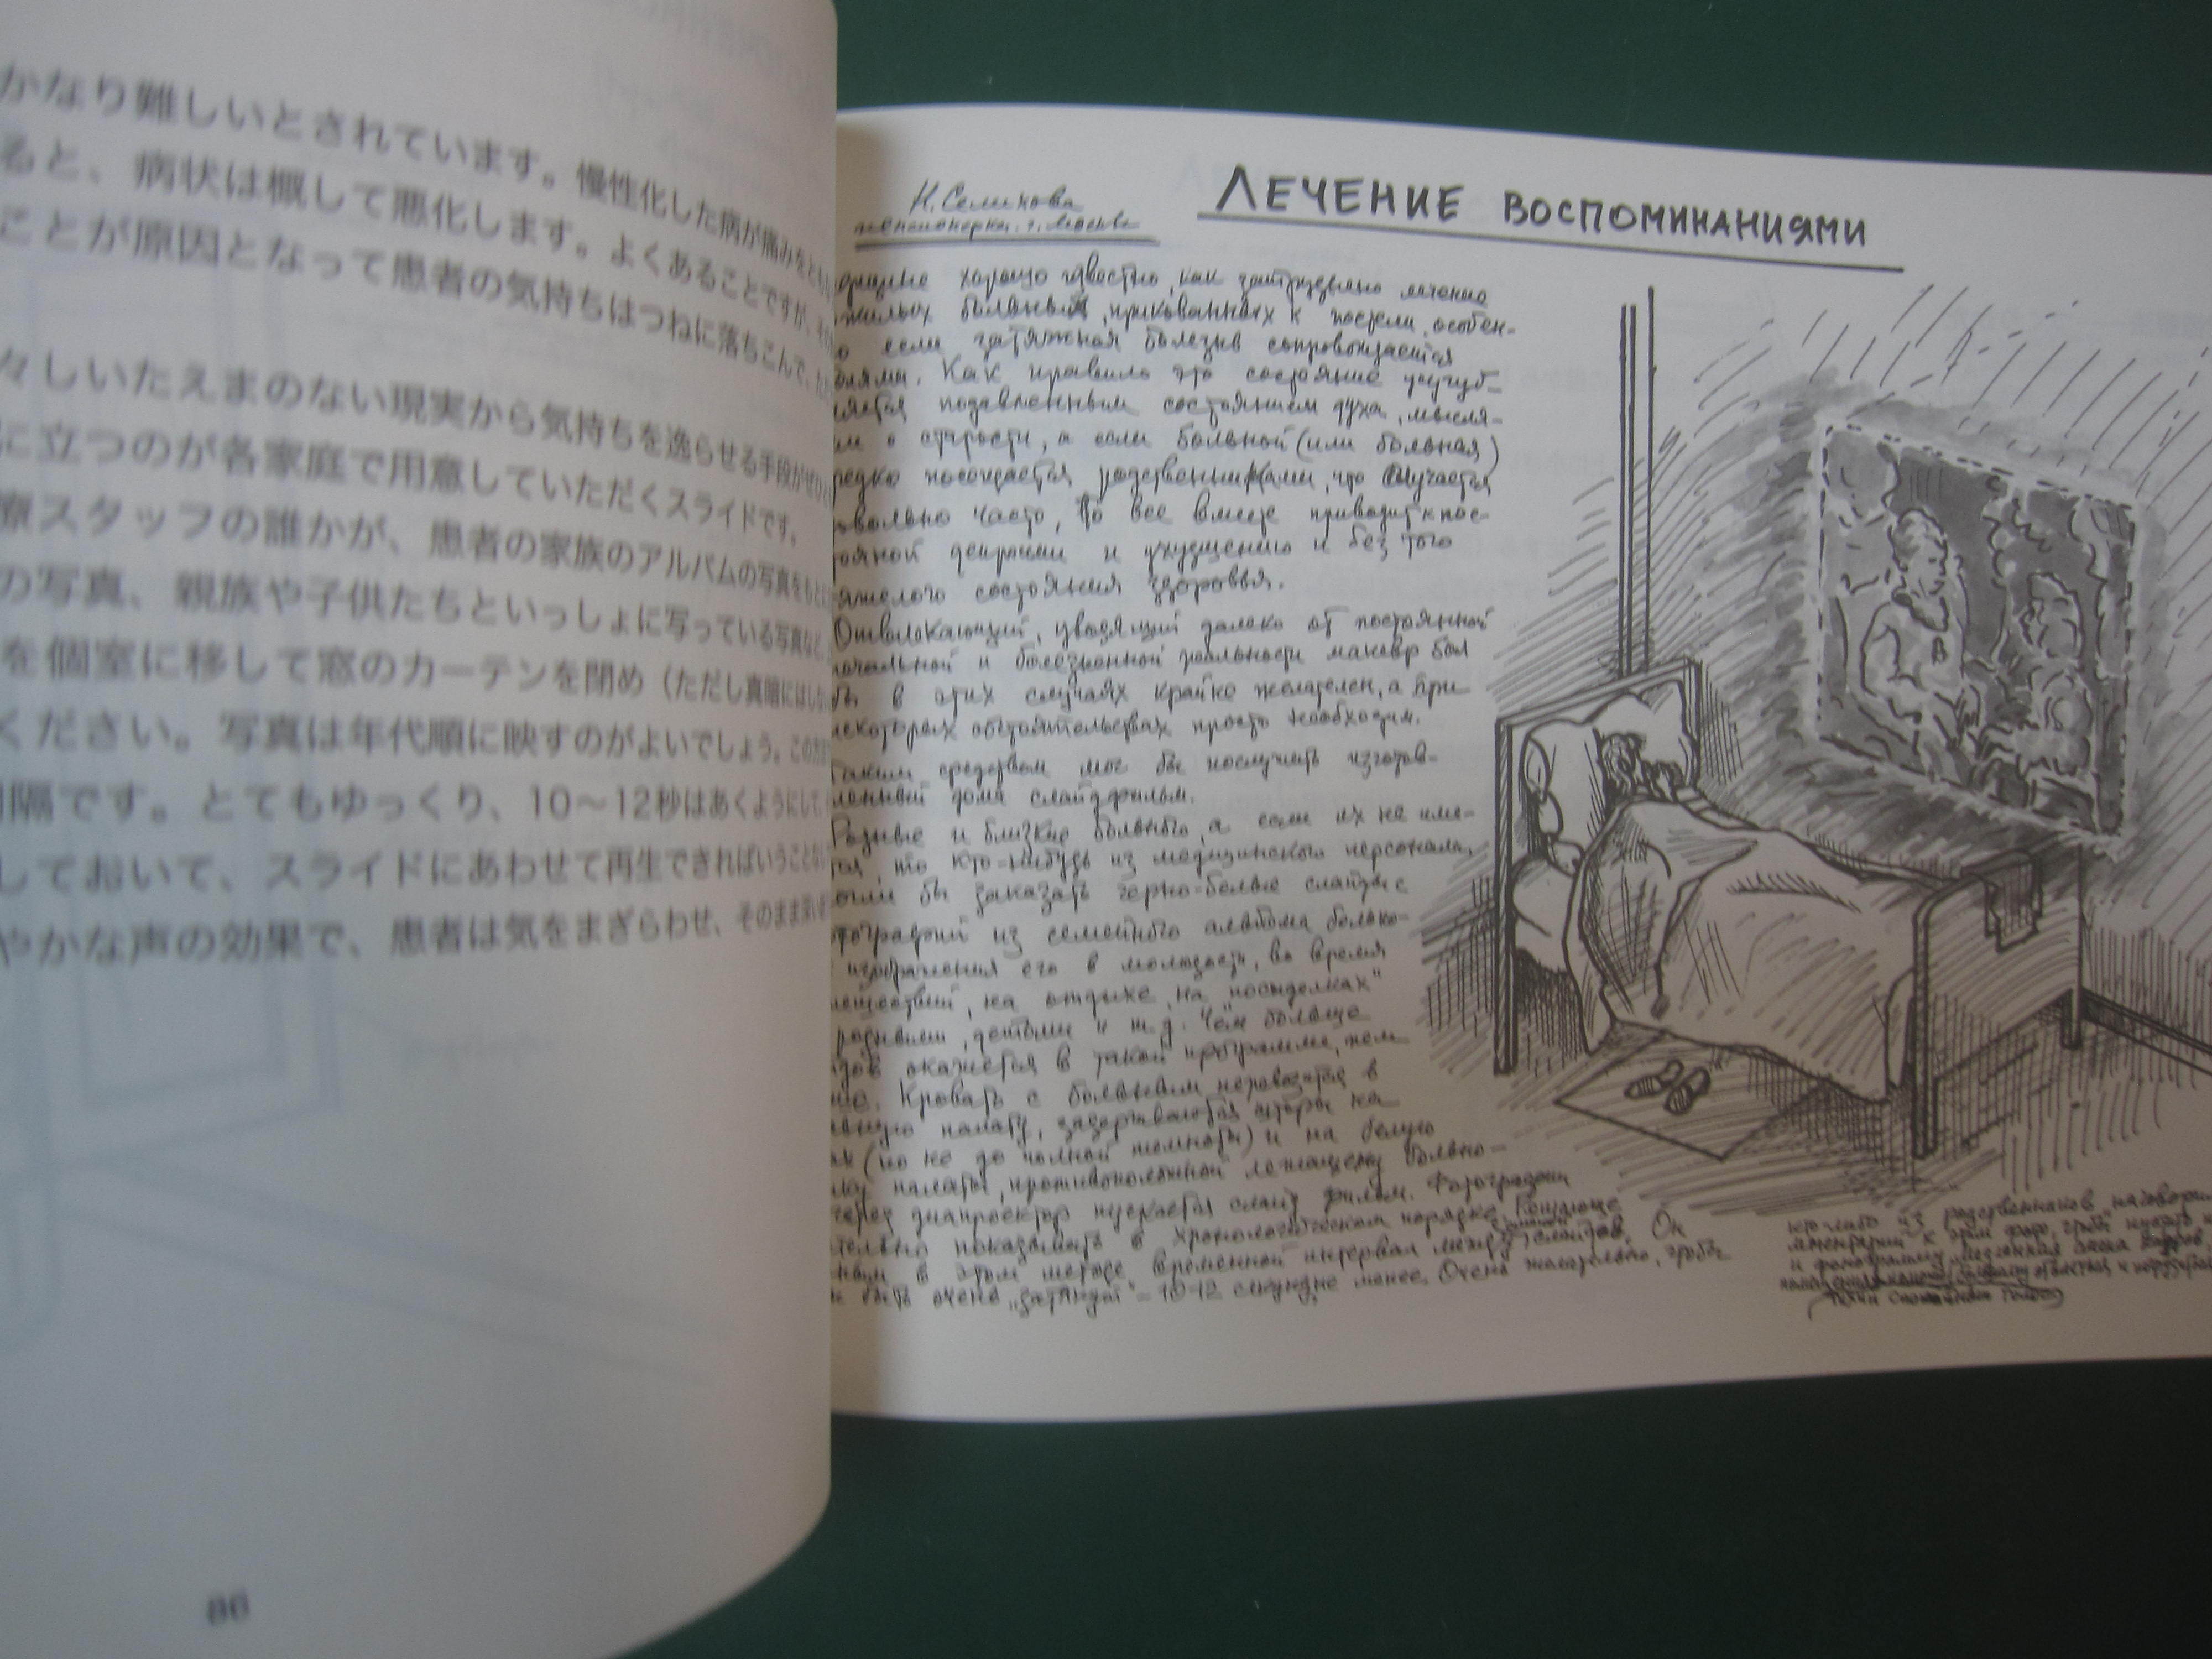 かなり難しいとされています。慢性化した病が痛みをとも
ると、病状は概して悪化します。よくあることですが、その
ことが原因となって患者の気持ちはつねに落ちこんで、
々しいたえまのない現実から気持ちを逸らせる手段がぜひ
に立つのが各家庭で用意していただくスライドです。
療スタッフの誰かが、患者の家族のアルバムの写真をもと
の写真、親族や子供たちといっしょに写っている写真など
を個室に移して窓のカーテンを閉め（ただし真暗にはしな
ください。写真は年代順に映すのがよいでしょう。この方
隔です。とてもゆっくり、10〜12秒はあくようにして
しておいて、スライドにあわせて再生できればいうことな
やかな声の効果で、患者は気をまぎらわせ、そのまま
86
ЛЕЧЕНИЕ ВОСПОМИНАНИЯМИ
Н. Семихова
пенсионерка. г. Москва
хорошо известно, как затруднено лечение
больных, прикованных к постели, особен-
если затяжная болезнь сопровождается
болями. Как правило это состояние усугуб-
ляется подавленным состоянием духа, мысля-
ми о старости, а если больной (или больная)
редко посещается родственниками, что случается
довольно часто, то все вместе приводит к пос-
тоянной депрессии и ухудшению и без того
тяжелого состояния здоровья.
Отвлекающий, уводящий далеко от постоянной
печальной и болезненной реальности маневр был
бы в этих случаях крайне желателен, а при
некоторых обстоятельствах просто необходим.
Таким средством мог бы послужить изготов-
ленный дома слайдфильм.
Родные и близкие больного, а если их не име-
ется, то кто-нибудь из медицинского персонала,
могли бы заказать черно-белые слайды с
фотографий из семейного альбома больно-
изображения его в молодости, во время
на отдыхе, на "посиделках"
родными, детьми и т.д. Чем больше
окажется в такой программе, тем
Кровать с больным перевозится в
палату, задергиваются шторы на
(но не до полной темноты) и на белую
палаты, противоположной лежащему больно-
через диапроектор пускается слайд фильм. Фотографии
показывать в хронологическом порядке. Решающе
в этом методе временной интервал между слайдов. Он
быть очень "затянут" – 10-12 секунд не менее. Очень желательно, чтобы
кто-либо из родственников наговорил
к этим фото, чтобы